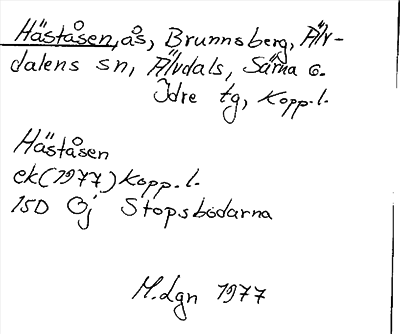 Häståsen, ås, Brunnsberg, Älv-
dalens sn, Älvdals, Särna o.
Idre tg, Kopp.l.
Häståsen
ek(1977) Kopp.l.
15D 0j Stopsbodarna
M.Lgn 1977